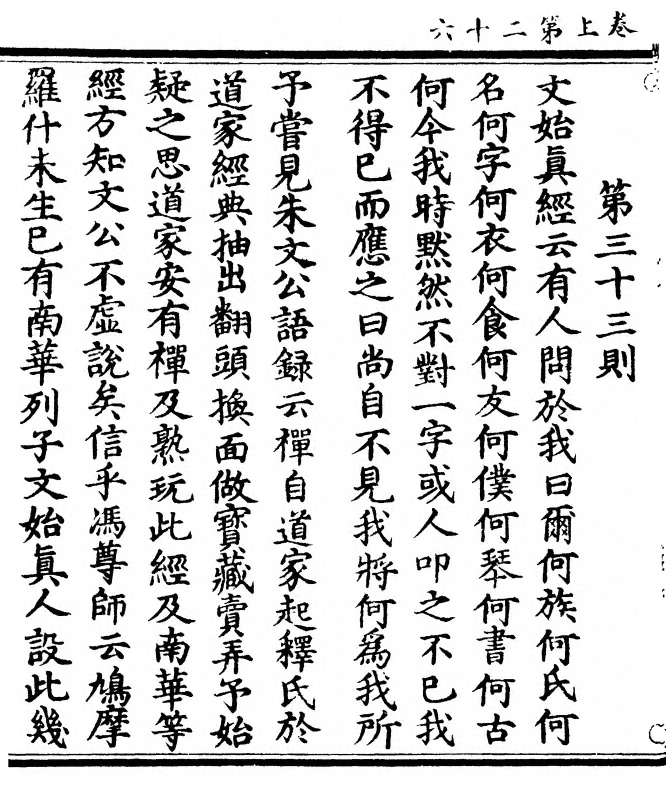 卷上第二十六
第三十三則
文始眞經云有人問於我曰爾何族何氏何
名何字何衣何食何友何僕何琴何書何古
何今我時默然不對一字或人叩之不已我
不得已而應之曰尚自不見我將何爲我所
予嘗見朱文公語録云禪自道家起釋氏於
道家經典抽出翻頭換面做寶藏賣弄予始
疑之思道家安有禪及熟玩此經及南華等
經方知文公不虚說矣信乎馮尊師云鳩摩
羅什未生已有南華列子文始眞人設此幾